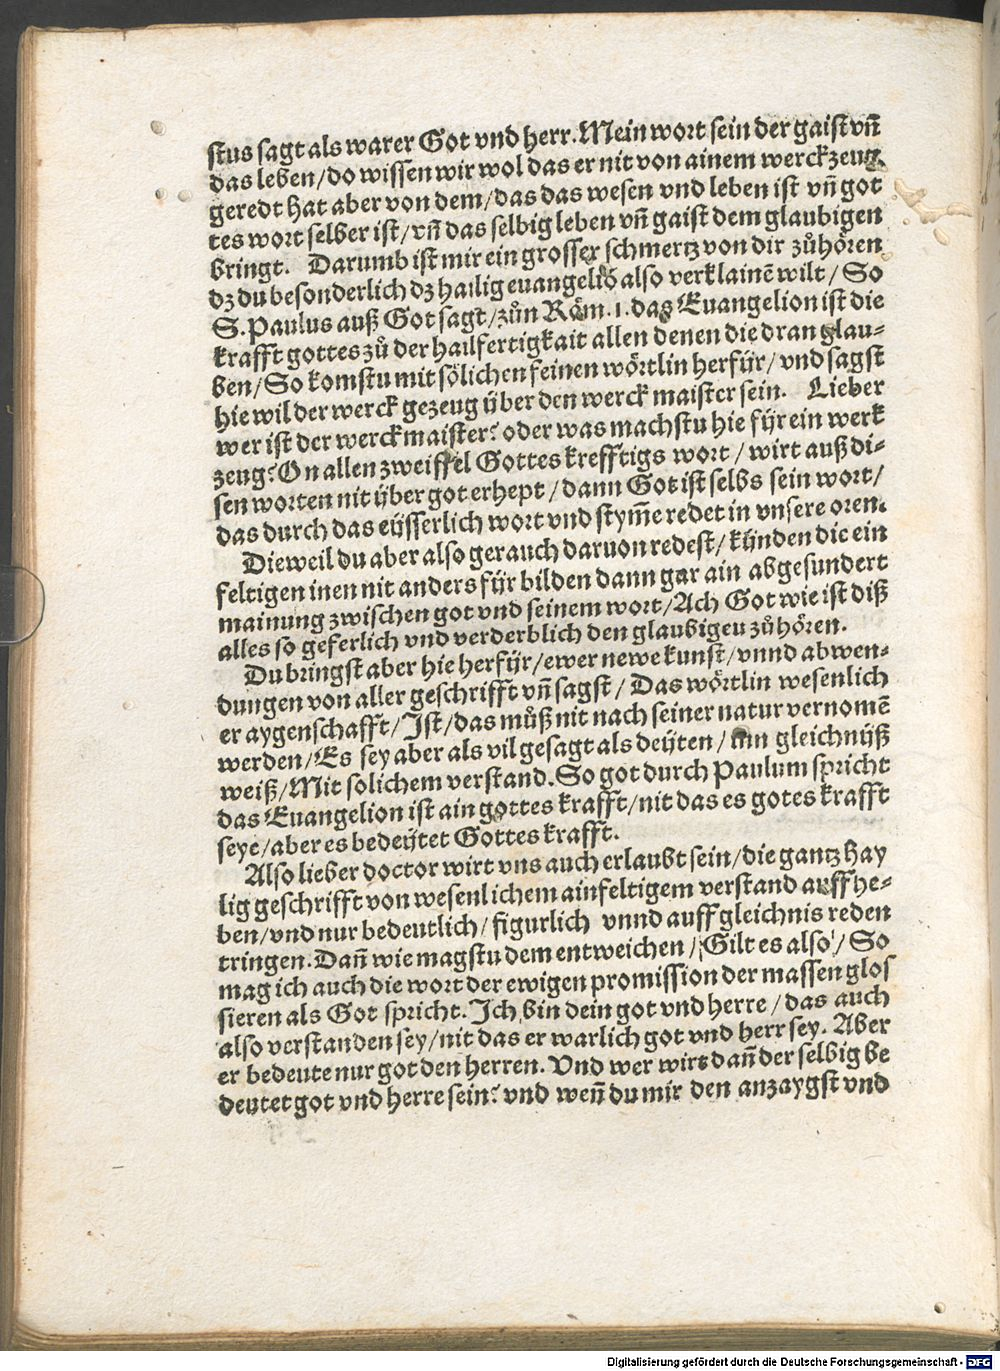 stus sagt als warer Got vnd herr. Mein wort sein der gaist vñ
das leben/ do wissen wir wol das er nit von ainem werckzeug
geredt hat aber von dem/ das das wesen vnd leben ist vñ got
tes wort selber ist/ vñ das selbig leben vñ gaist dem glaubigen
bringt. Darumb ist mir ein grosser schmertz von dir zů hören
dz du besonderlich dz hailig euangeliõ also verklainẽ wilt/ So
S. Paulus auß Got sagt/ zůn Röm. 1. das Euangelion ist die
krafft gottes zů der hailfertigkait allen denen die dran glau-
ben/ So komstu mit sölichen feinen wörtlin herfür/ vnd sagst
hie wil der werck gezeug über den werck maister sein. Lieber
wer ist der werckmaister? oder was machstu hie für ein werk
zeug? On allen zweiffel Gottes krefftigs wort/ wirt auß di-
sen worten nit über got erhept/ dann Got ist selbs sein wort/
das durch das eüsserlich wort vnd stym̃e redet in vnsere oren.
Dieweil du aber also gerauch daruon redest/ künden die ein
feltigen inen nit anders für bilden dann gar ain abgesundert
mainung zwischen got vnd seinem wort/ Ach Got wie ist diß
alles so geferlich vnd verderblich den glaubigeu zů hören.
Du bringst aber hie herfür/ ewer newe kunst/ vnnd abwen-
dungen von aller geschrifft vñ sagst/ Das wörtlin wesenlich
er aygenschafft/ Ist/ das můß nit nach seiner natur vernomẽ
werden/ Es sey aber als vil gesagt als deüten/ inn gleichnüß
weiß/ Mit solichem verstand. So got durch Paulum spricht
das Euangelion ist ain gottes krafft/ nit das es gotes krafft
seye/ aber es bedeütet Gottes krafft.
Also lieber doctor wirt vns auch erlaubt sein/ die gantz hay
lig geschrifft von wesenlichem ainfeltigem verstand auff he-
ben/ vnd nur bedeutlich/ figurlich vnnd auff gleichnis reden
tringen. Dañ wie magstu dem entweichen/ Gilt es also/ So
mag ich auch die wort der ewigen promission der massen glos
sieren als Got spricht. Ich bin dein got vnd herre/ das auch
also verstanden sey/ nit das er warlich got vnd herr sey. Aber
er bedeute nur got den herren. Vnd wer wirt dañ der selbig be
deutet got vnd herre sein? vnd weñ du mir den anzaygst vnd
Digitalisierung gefördert durch die Deutsche Forschungsgemeinschaft - DFG